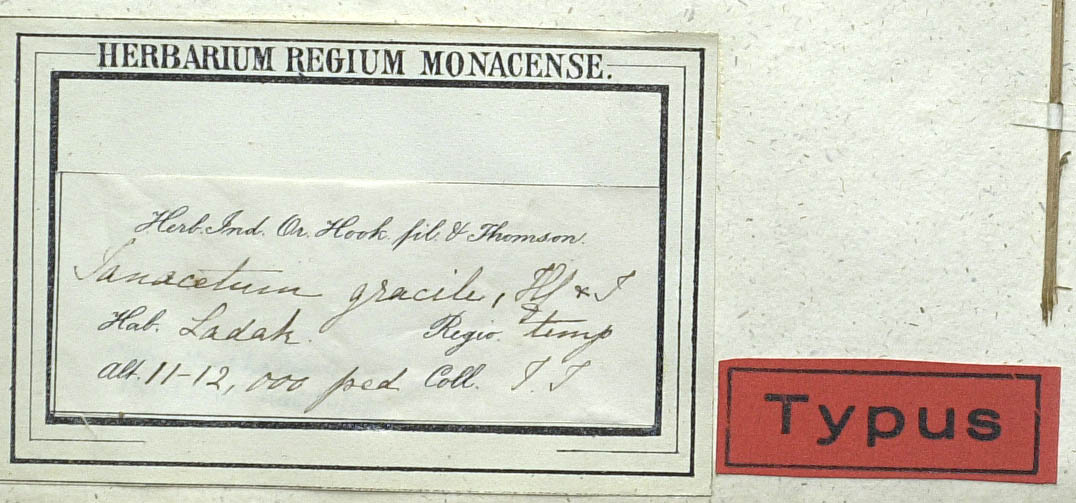 HERBARIUM REGIUM MONACENSE.
Herb. Ind. Or. Hook. fil. & Thomson.
Tanacetum gracile, Hf & T
Hab. Ladak. Regio. temp
Alt. 11-12,000 ped Coll. T. T
Typus